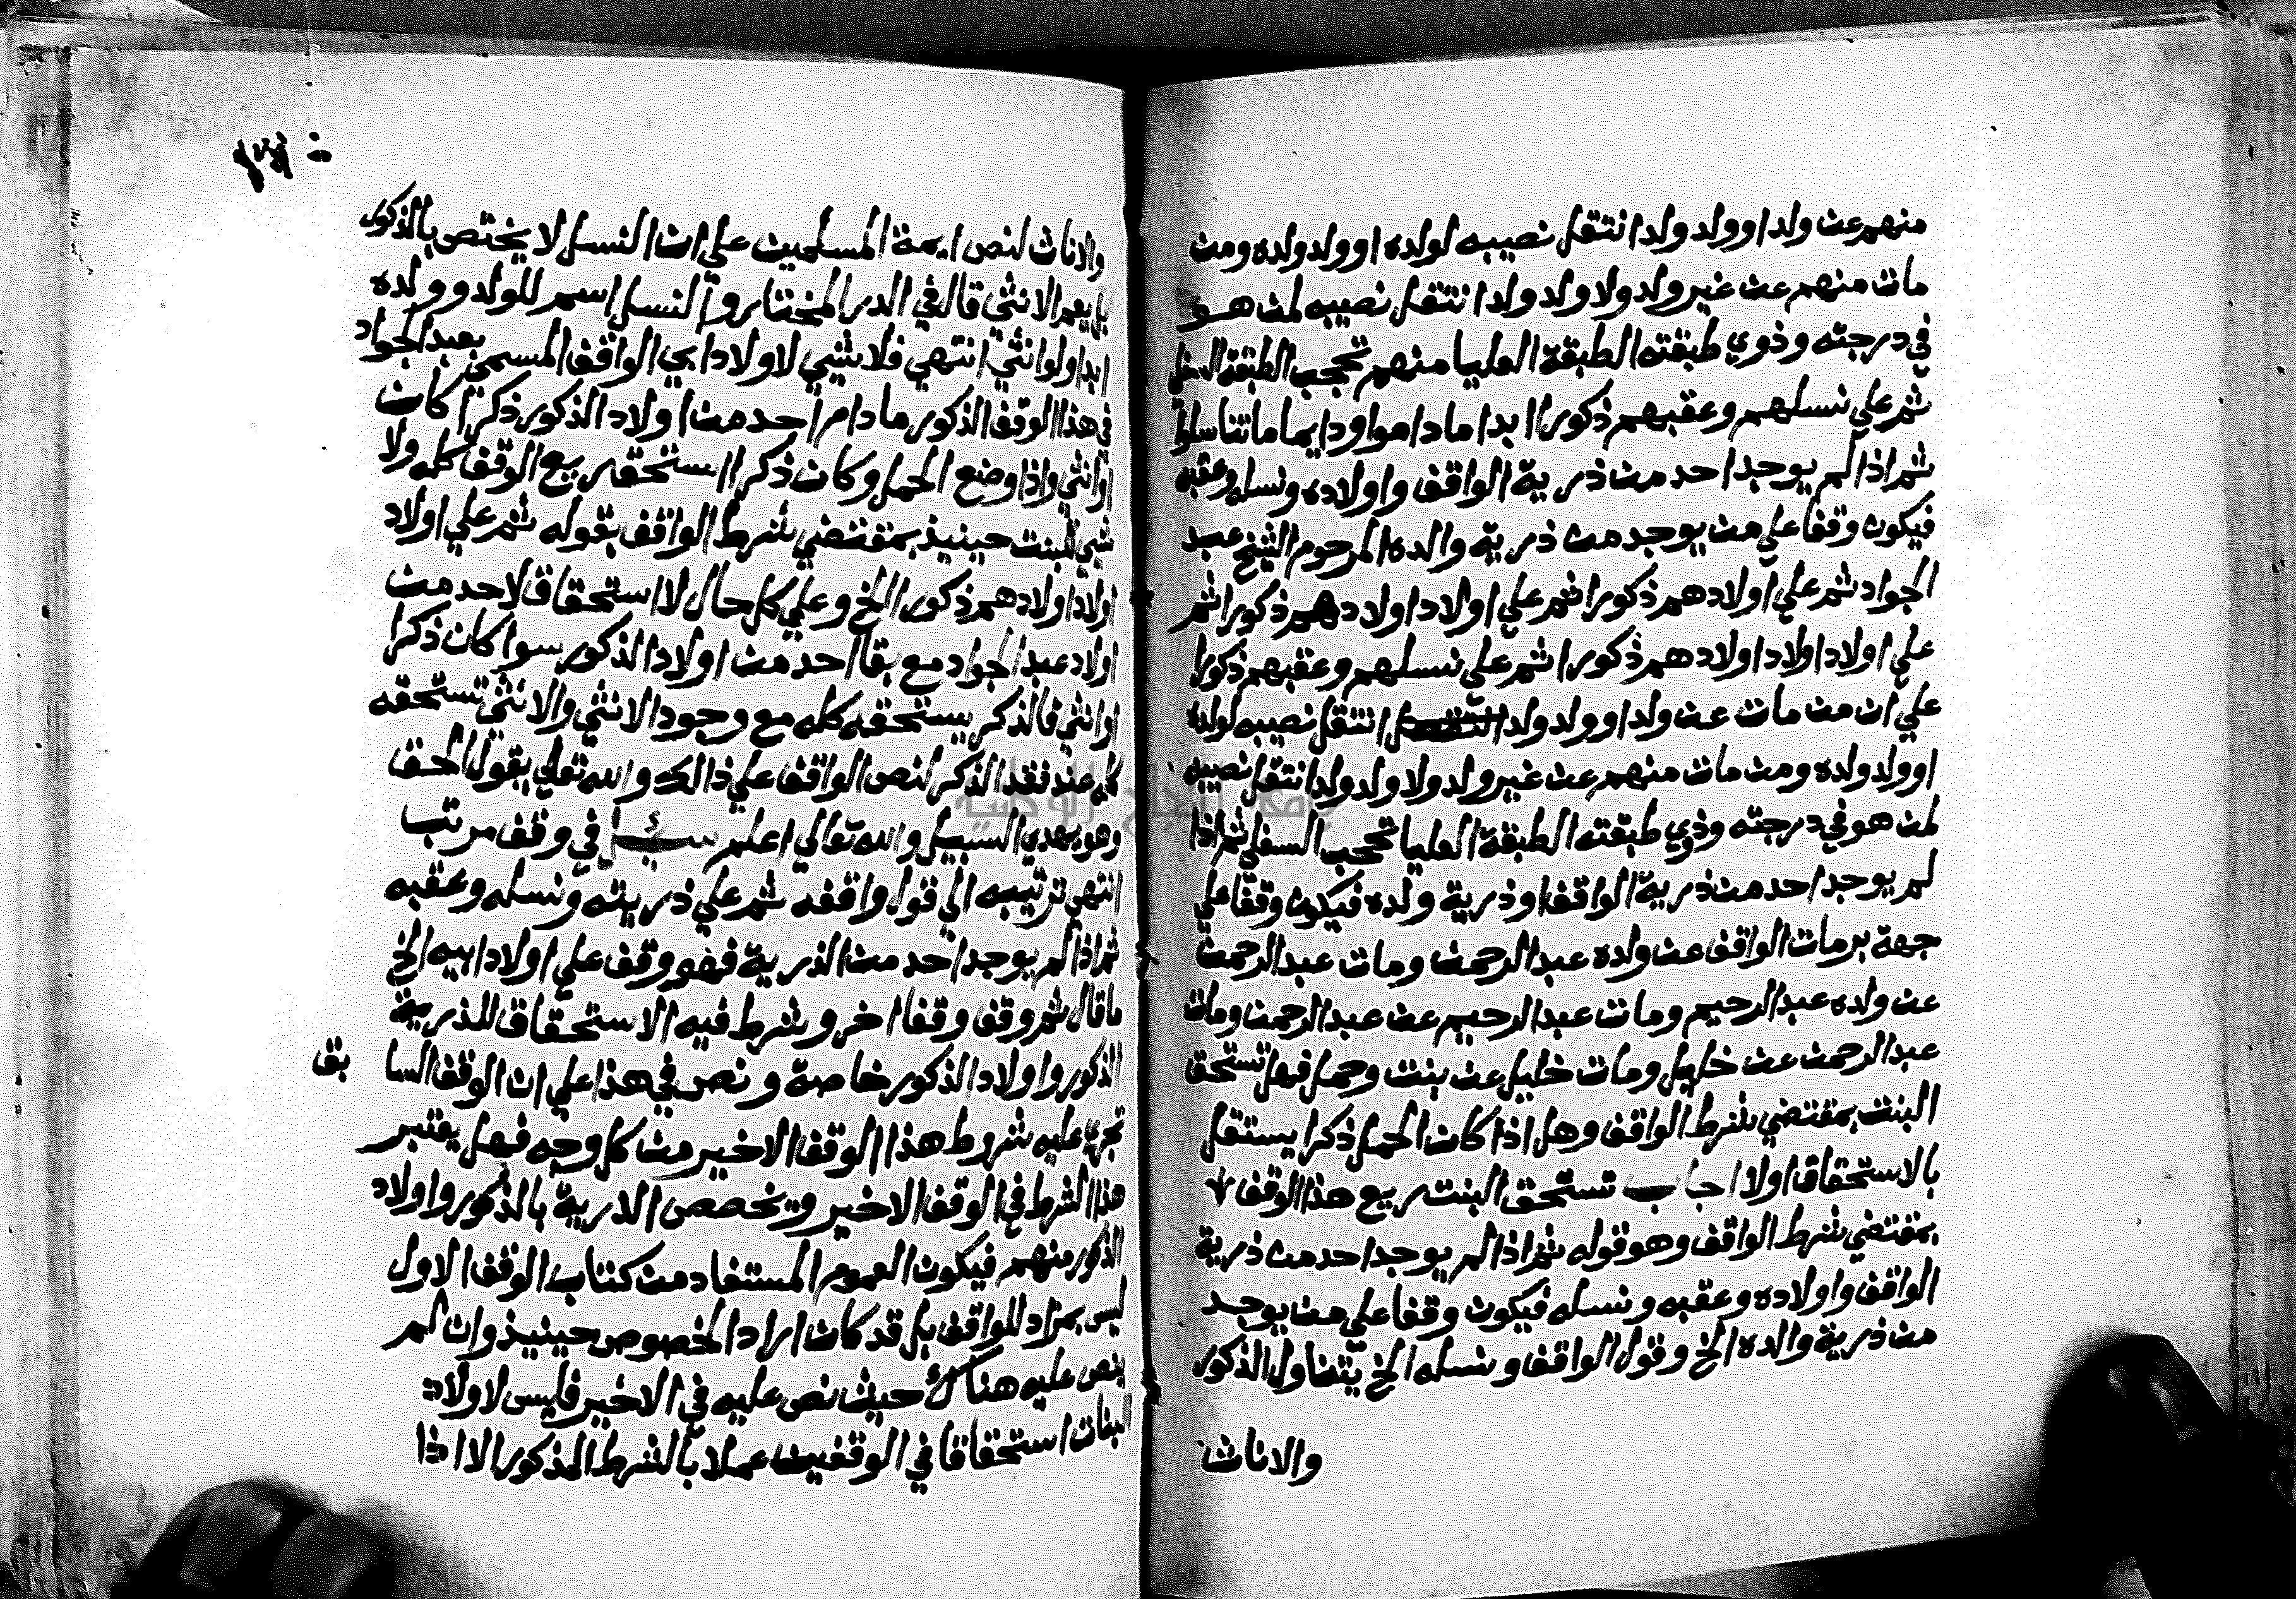 منهم عن ولد او ولد ولد انتقل نصيبه لولده او ولد ولده ومن
مات منهم عن غير ولد ولا ولد ولد انتقل نصيبه لمن هو
في درجته وذوي طبقته الطبقة العليا منهم تحجب الطبقة
ثم علي نسلهم وعقبهم ذكورا ابدا ما داموا ودايما ما تناسلوا
ثم اذا لم يوجد احد من ذرية الواقف واولاده ونسله وعقبه
فيكون وقفا علي من يوجد من ذرية والده المرحوم الشيخ عبد
الجواد ثم علي اولادهم ذكورا ثم علي اولاد اولادهم ذكورا ثم
علي اولاد اولاد اولادهم ذكورا ثم علي نسلهم وعقبهم ذكورا
علي ان من مات عن ولد او ولد ولد انتقل نصيبه لولده
او ولد ولده ومن مات منهم عن غير ولد ولا ولد ولد انتقل نصيبه
لمن هو في درجته وذوي طبقته الطبقة العليا تحجب السفلي ثم اذا
لم يوجد احد من ذرية الواقف او ذرية ولده فيكون وقفا علي
جهة بر مات الواقف عن ولده عبد الرحمن ومات عبد الرحمن
عن ولده عبد الرحيم ومات عبد الرحيم عن عبد الرحمن ومات
عبد الرحمن عن خليل ومات خليل عن بنت وحمل فهل تستحق
البنت بمقتضي شرط الواقف وهل اذا كان الحمل ذكرا يستقل
بالاستحقاق اولا اجاب تستحق البنت ريع هذا الوقف
بمقتضي شرط الواقف وهو قوله ثم اذا لم يوجد احد من ذرية
الواقف واولاده وعقبه ونسله فيكون وقفا علي من يوجد
من ذرية والده الخ وقول الواقف ونسله الخ يتناول الذكور
والاناث
والاناث لنص ايمة المسلمين علي ان النسل لا يختص بالذكور
بل يعم الانثي قال في الدر المختار والنسل اسم للولد وولده
ابدا ولو انثي انتهي فلا شيي لاولاد ابي الواقف المسمي بعبد الجواد
في هذا الوقف المذكور ما دام احد من اولاد الذكور ذكرا كان
او انثي واذا وضع الحمل وكان ذكرا استحق ريع الوقف كله ولا
شي للبنت حينيذ بمقتضي شرط الواقف بقوله ثم علي اولاد
اولاد اولادهم ذكور الخ وعلي كل حال لا استحقاق لاحد من
اولاد عبد الجواد مع بقا احد من اولاد الذكور سوا كان ذكرا
او انثي فالذكر يستحقه كله مع وجود الانثي والانثي تستحقه
كله عند فقد الذكر لنص الواقف علي ذالك والله تعلي يقول الحق
وهو يهدي السبيل والله تعالي اعلم سيل في وقف مرتب
انتهي ترتيبه الي قول واقفه ثم علي ذريته ونسله وعقبه
ثم اذا لم يوجد احد من الذرية فهو وقف علي اولاد ابيه الخ
ما قال ثم وقف وقفا اخر وشرط فيه الاستحقاق للذرية
الذكور واولاد الذكور خاصة ونص في هذا علي ان الوقف السا بق
تجري عليه شروط هذا الوقف الاخير من كل وجه فهل يعتبر
هذا الشرط في الوقف الاخير ويخصص الذرية بالذكور واولاد
الذكور منهم فيكون العموم المستفاد من كتاب الوقف الاول
ليس بمراد للواقف بل قد كان اراد الخصوص حينيذ وان لم
ينص عليه هناك حيث نص عليه في الاخير فليس لاولاد
البنات استحقاقا في الوقفين عملا بالشرط المذكور الا اذا
جامعة النجاح الوطنية